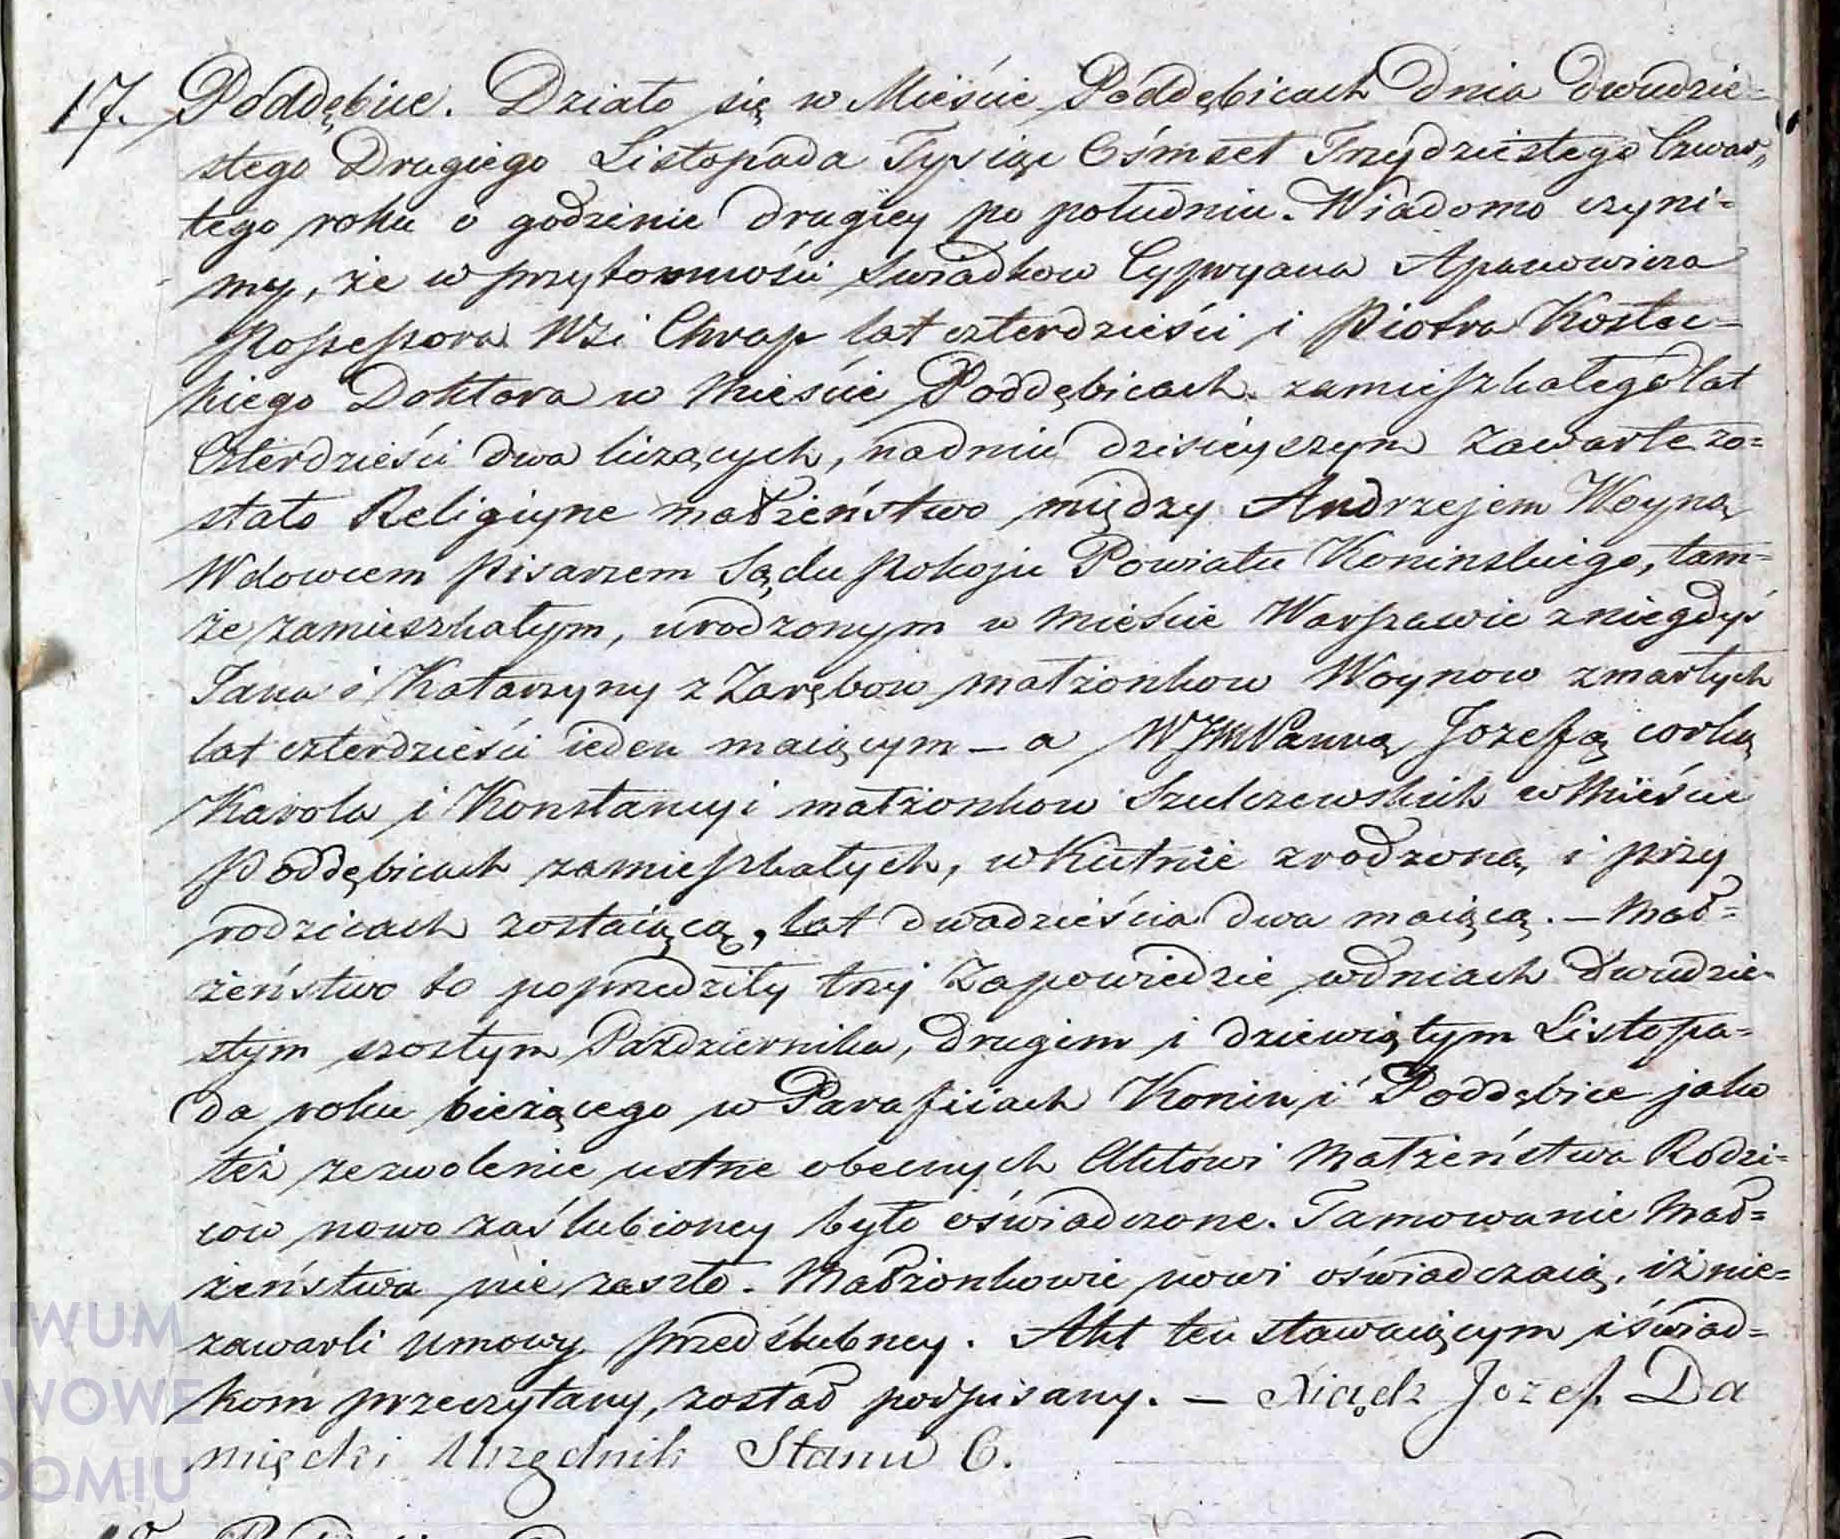 17. Poddębice. Działo się w Mieście Poddębicach dnia dwudzie=
stego Drugiego Listopada Tysiąc Ośmset Trzydziestego Czwar„
tego roku o godzinie drugiey po południu. Wiadomo czyni=
my, że w przytomności Swiadkow Cypryana Apanowicza
Possessora Wsi Chrap lat czterdzieści i Piotra Kostec=
kiego Doktora w Mieście Poddębicach zamieszkałego lat
Czterdzieści dwa liczących, na dniu dzisieyszym zawarte zo=
stało Religiyne małżeństwo między Andrzejem Woyną
Wdowcem Pisarzem Sądu Pokoju Powiatu Koninskiego, tam=
że zamieszkałym, urodzonym w Mieście Warszawie z niegdyś
Jana i Katarzyny z Zarębow małżonkow Woynow zmarłych
lat czterdzieści ieden maiącym – a WJMPanną Jozefą corką
Karola i Konstancyi małżonkow Szulczewskich w Mieście
Poddębicach zamieszkałych, w Kutnie zrodzoną i przy
rodzicach zostaiącą, lat dwadzieścia dwa maiącą. – Mał=
żeństwo to poprzedziły trzy Zapowiedzie w dniach dwudzie=
stym szostym Pazdziernika, drugim i dziewiątym Listopa=
da roku bieżącego w Parafiiach Konin i Poddębice jako
też zezwolenie ustne obecnych Aktowi Małżeństwa Rodzi=
cow nowo zaślubioney było oświadczone. Tamowanie Mał=
żeństwa nie zaszło. Małżonkowie nowi oświadczaią, iż nie=
zawarli umowy przedślubney. Akt ten stawaiącym i świad=
kom przeczytany, został podpisany. – Xiądz Jozef Da
mięcki Urzędnik Stanu C.
IWUM
WOWE
DOMIU